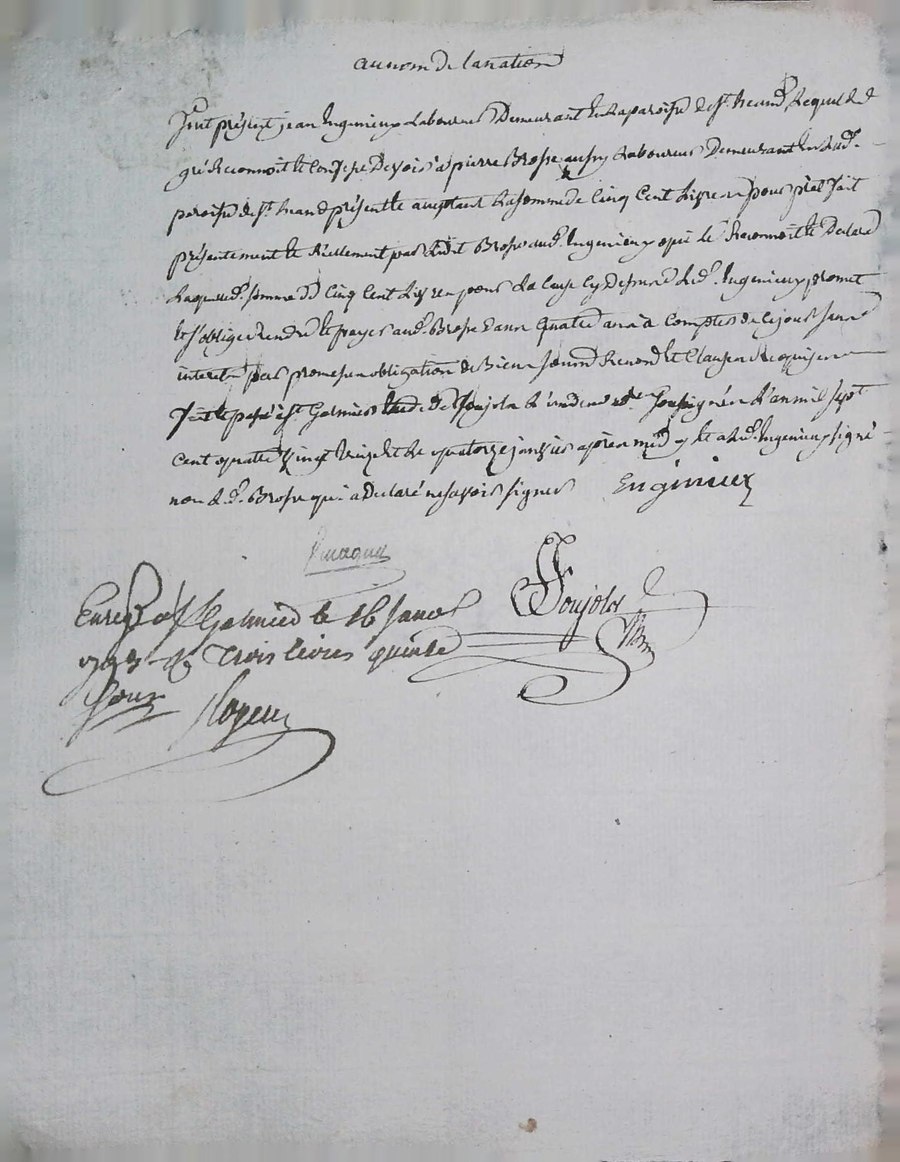 au nom de la nation
fut présent jean Ingenieux Laboureur Demeurant en La paroisse de St. heand Lequel de
gré Reconnoit et Confesse Devoir a pierre Brosse aussy Laboureur Demeurant en Lad.
paroisse de St. heand présent et aceptant La somme de Cinq Cent Livres pour prêt fait
présentement et Réellement par Ledit Brosse aud. Ingenieux qui le Reconnoit et Declare
Laquelle d. somme de Cinq Cent Livres pour La Cause Cy Dessus Led. Ingenieux promet
et s'oblige rendre et payer aud. Brosse Dans Quatre ans a Compter de Ce jour sans
interet par promesse obligation de Biens soum. Renond. et Clauses Requises
fait et passé a St. Galmier Etude de Soujol soussigné L'an mil sept
cent quatre vingt treize et le quatorze janvier apres midy et a Led. Ingenieux signé
non Led. Brosse qui a Declaré ne savoir signer Engénieux
Soujol
Enregé a St Galmier le 16 janvr
1793 Trois livres quinze
Sous